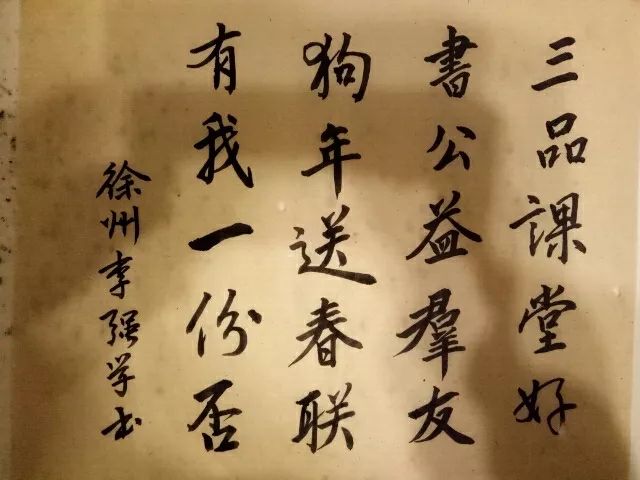 三品課堂好
書公益羣友
狗年送春联
有我一份否
徐州李强学书